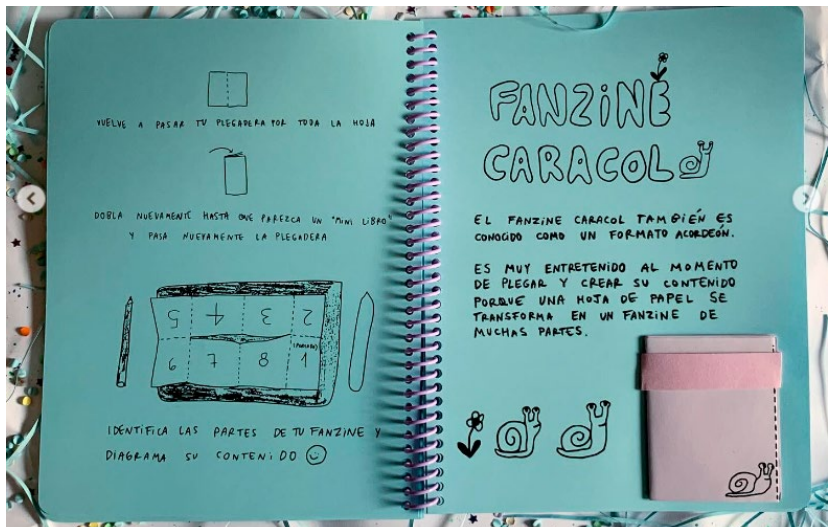 VUELVE A PASAR TU PLEGADERA POR TODA LA HOJA
DOBLA NUEVAMENTE HASTA QUE PAREZCA UN "MINI LIBRO"
Y PASA NUEVAMENTE LA PLEGADERA
5 4 3 2
(PORTADA)
6 7 8 1
IDENTIFICA LAS PARTES DE TU FANZINE Y
DIAGRAMA SU CONTENIDO
FANZINE
CARACOL
EL FANZINE CARACOL TAMBIÉN ES
CONOCIDO COMO UN FORMATO ACORDEÓN.
ES MUY ENTRETENIDO AL MOMENTO
DE PLEGAR Y CREAR SU CONTENIDO
PORQUE UNA HOJA DE PAPEL SE
TRANSFORMA EN UN FANZINE DE
MUCHAS PARTES.